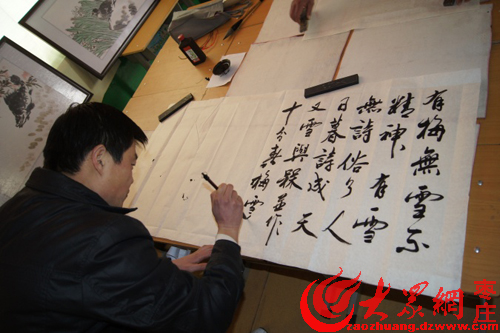 有梅無雪不
精神 有雪
無詩俗了人
日暮詩成 天
又雪與槑並作
十分春 梅雪
大眾網 枣庄
zaozhuang.dzwww.com